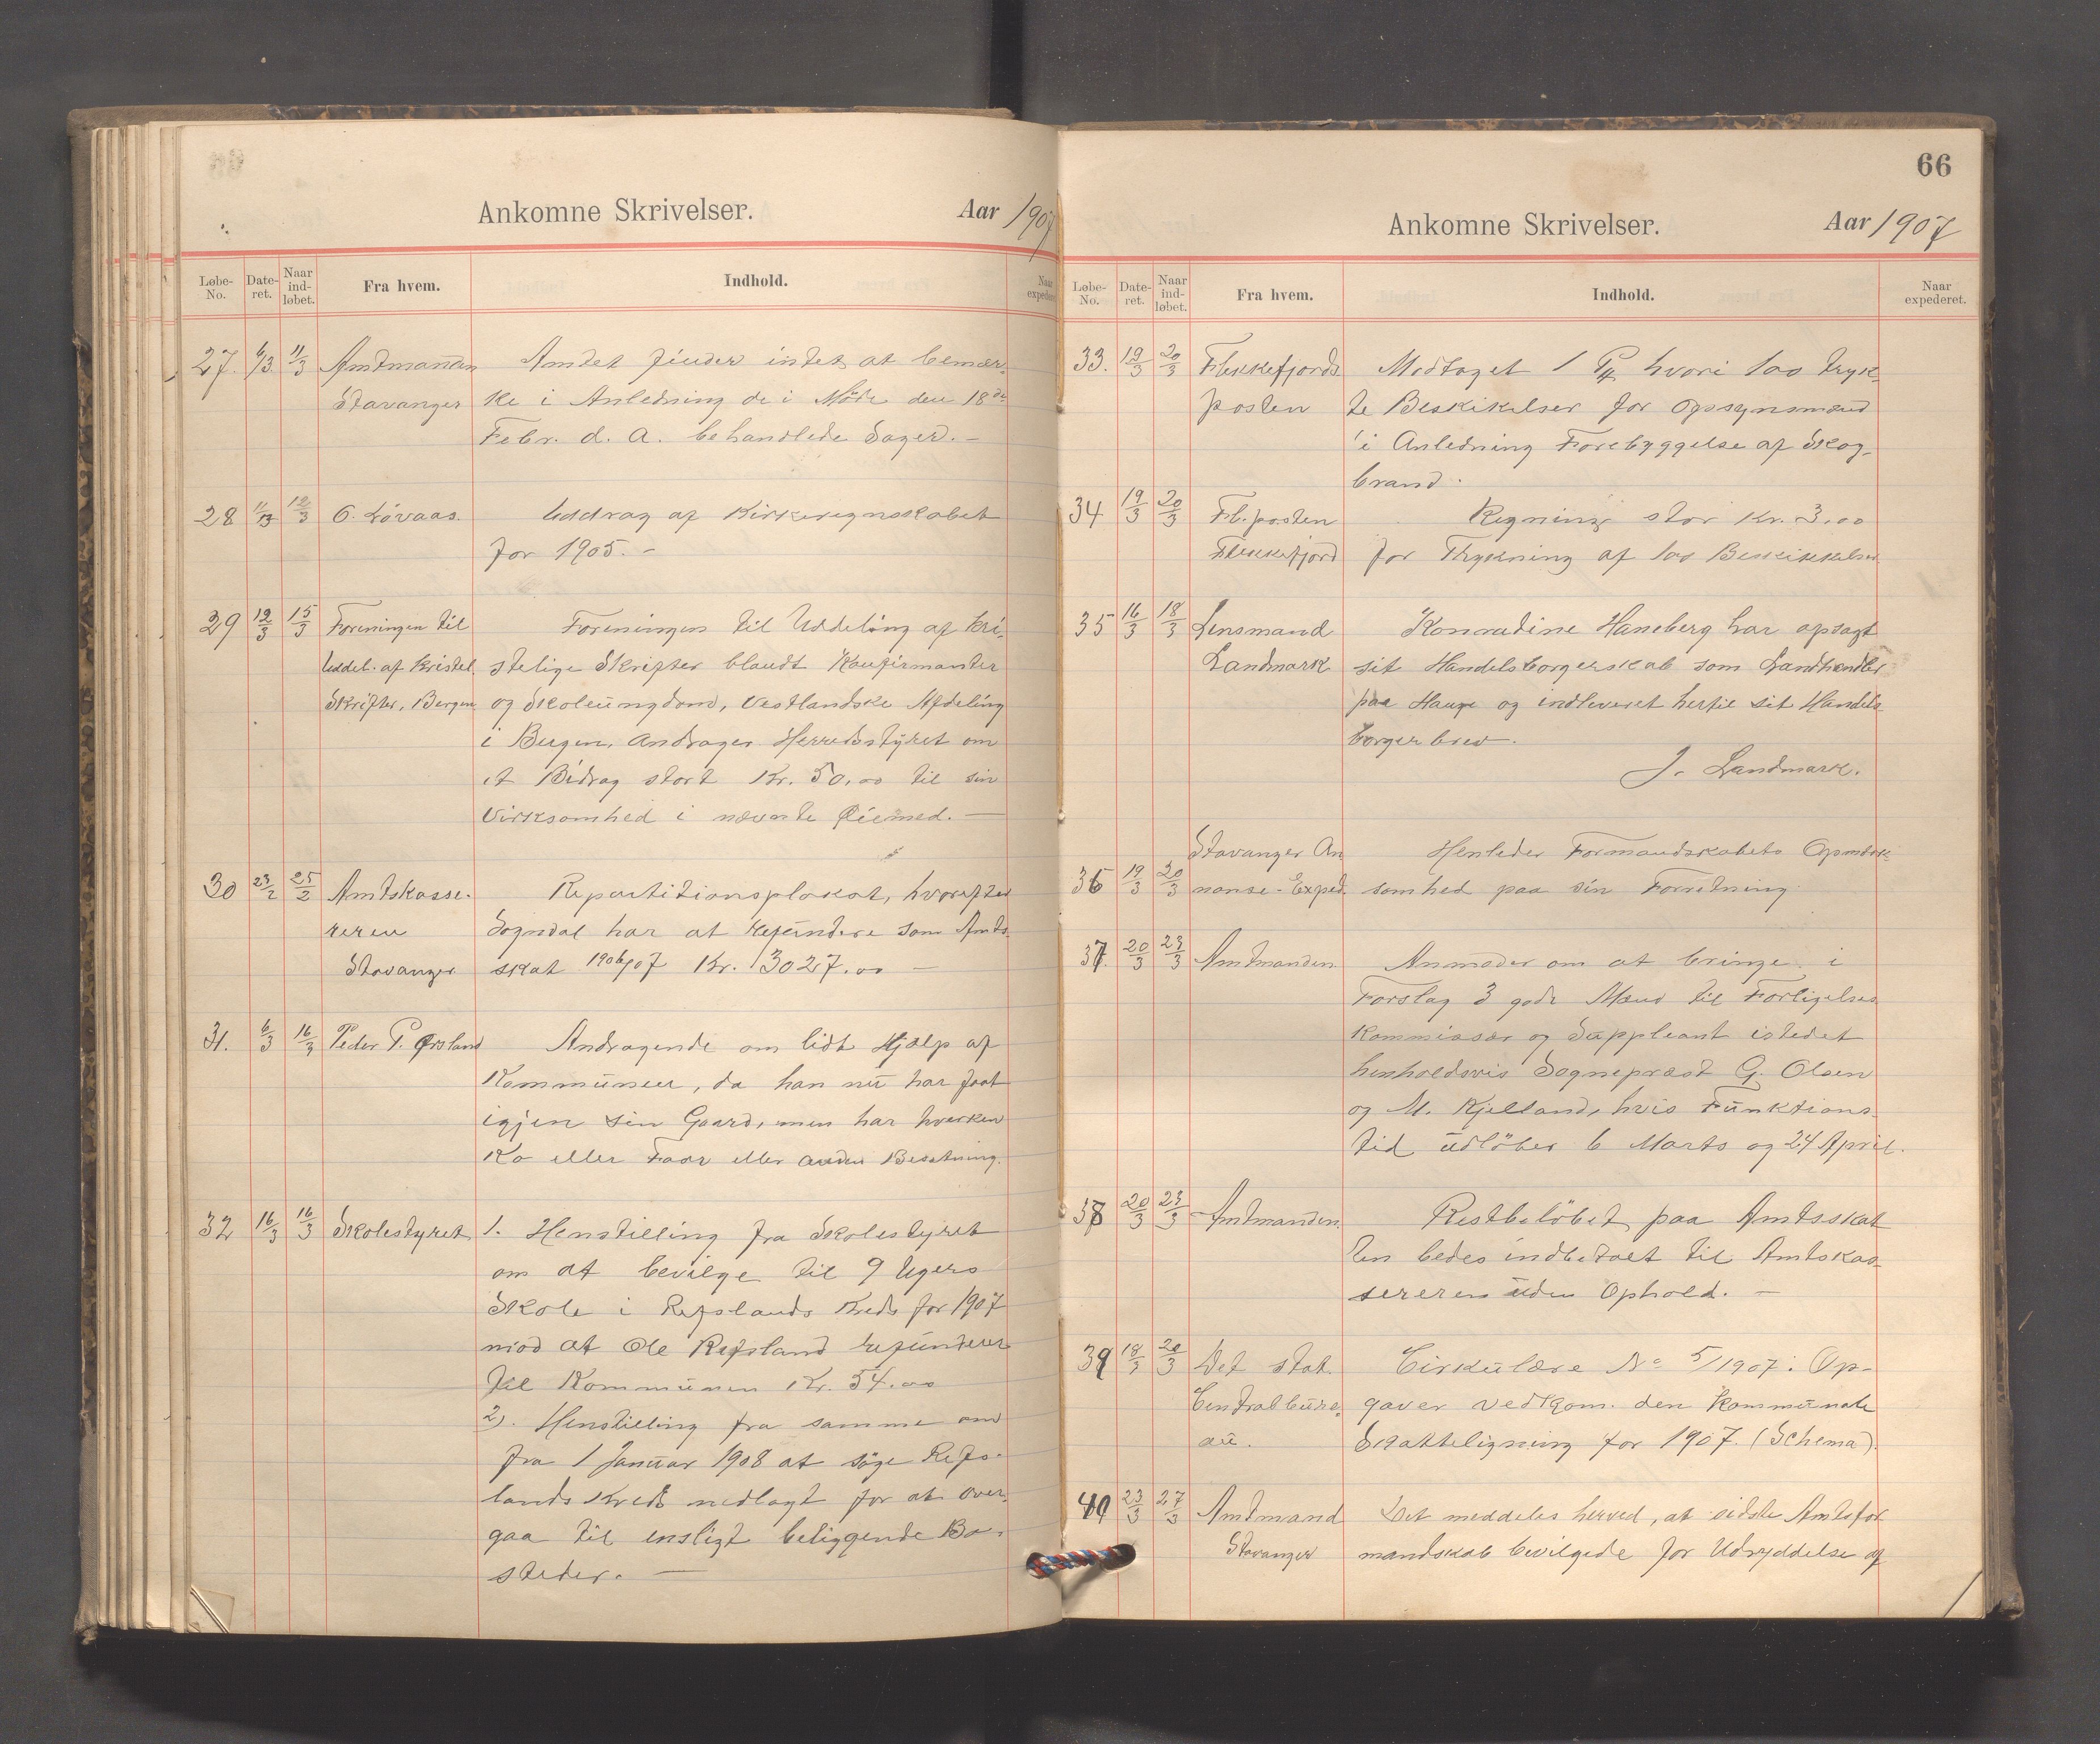 Ankomne Skrivelser.
Aar 1907
Løbe-No.
Date-ret.
Naar ind-løbet.
Fra hvem.
Indhold.
Naar expederet
27. 6/3. 11/3 Amtmanden Amtet finder intet at bemær-
Stavanger ke i Anledning de i Møde den 18de
Febr. d. A. behandlede Sager. –
28 11/3 12/3 O. Løvaas. Uddrag af Kirkeregnskabet
for 1905. –
29 12/3 15/3 Foreningen til Foreningen til Uddeling af kri-
Uddel. af Kristel. stelige Skrifter blandt Konfirmanter
Skrifter, Bergen og Skoleungdom, Vestlandske Afdeling
i Bergen, Andrager Herredsstyret om
et Bidrag stort Kr. 50.00 til sin
Virksomhed i nævnte Øiemed. –
30 23/2 25/2 Amtskasse- Repartitionsplakat, hvorefter
reren Sogndal har at refundere som Amts-
Stavanger skat 1906/07 Kr. 3027.00 –
31. 6/3 16/3 Peder P. Ørsland Andragende om lidt Hjælp af
Kommunen, da han nu har faat
igjen sin Gaard, men har hverken
Ko eller Faar eller anden Besætning.
32 16/3 16/3 Skolestyret 1. Henstilling fra Skolestyret
om at bevilge til 9 Ugers
Skole i Refslands Kreds for 1907
mod at Ole Refsland refunderer
til Kommunen Kr. 54.00
2). Henstilling fra samme om
fra 1 Januar 1908 at søge Refs-
lands Kreds nedlagt for at over-
gaa til ensligt beliggende Bo-
steder. –
66
Ankomne Skrivelser.
Aar 1907
Løbe-No.
Date-ret.
Naar ind-løbet.
Fra hvem.
Indhold.
Naar expederet.
33. 19/3 20/3 Flekkefjords Modtaget 1 Pk hvori 100 tryk-
posten te Beskikelser for Opsynsmænd
i Anledning Forebyggelse af Skog-
brand.
34 19/3 20/3 Fl.posten Regning stor Kr. 3.00
Flekkefjord for Trykning af 100 Beskikkelser.
35 16/3 18/3 Lensmand Konradine Haneberg har opsagt
Landmark sit Handelsborgerskab som Landhandler
paa Hauge og indleveret hertil sit Handels-
borgerbrev.
J. Landmark.
Stavanger An Henleder Formandskabets Opmærk-
36 19/3 20/3 nonse-Exped. somhed paa sin Forretning.
37. 20/3 23/3 Amtmanden Anmoder om at bringe i
Forslag 3 gode Mænd til Forligelses
kommissær og Suppleant istedet
henholdsvis Sogneprest G. Olsen
og M. Kjelland, hvis Funktions-
tid udløber 6 Marts og 24 April.
38 20/3 23/3 Amtmanden. Restbeløbet paa Amtsskat
ten bedes indbetalt til Amtskas-
sereren uden Ophold. –
39 18/3 20/3 Det stat. Cirkulære No 5/1907. Op-
Centralbure- gaver vedkom. den kommunale
au. Skatteligning for 1907. (Schema).
40 23/3 27/3 Amtmand Det meddeles herved, at sidste Amtsfor
Stavanger mandskab bevilgede for Udryddelse af